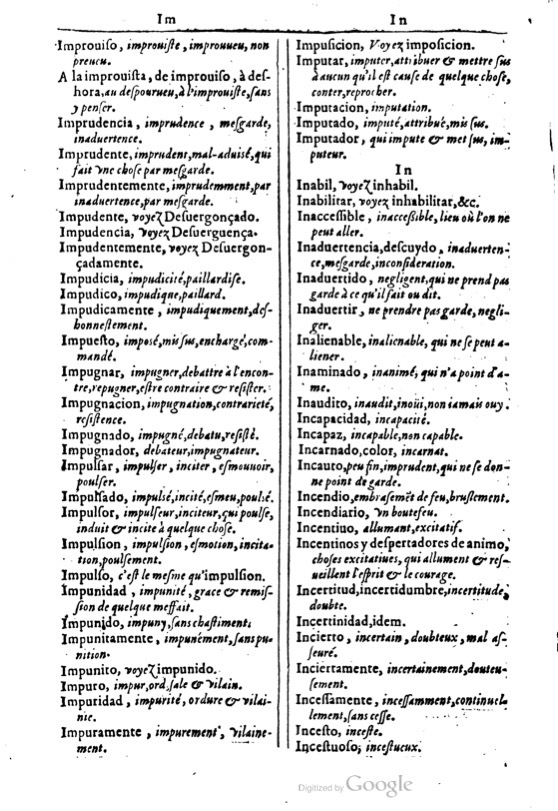 Im
In
Improuiso, improuiste, improuueu, non
preueu.
A la improuista, de improuiso, à deſ-
hora, au deſpourueu, à l'improuiste, ſans
y penſer.
Imprudencia, imprudence, meſgarde,
inaduertence.
Imprudente, imprudent, mal-aduisé, qui
fait vne choſe par meſgarde.
Imprudentemente, imprudemment, par
inaduertence, par meſgarde.
Impudente, voyez Deſuergonçado.
Impudencia, voyez Deſuerguença.
Impudentemente, voyez Deſuergon-
çadamente.
Impudicia, impudicité, paillardiſe.
Impudico, impudique, paillard.
Impudicamente, impudiquement, deſ-
honneſtement.
Impueſto, imposé, mis ſus, enchargé, com-
mandé.
Impugnar, impugner, debattre à l'encon-
tre, repugner, eſtre contraire & reſiſter.
Impugnacion, impugnation, contrarieté,
reſiſtence.
Impugnado, impugné, debatu, reſiſté.
Impugnador, debateur, impugnateur.
Impulſar, impulſer, inciter, eſmouuoir,
poulſer.
Impulſado, impulsé, incité, eſmeu, poulsé.
Impulſor, impulſeur, inciteur, qui poulſe,
induit & incite à quelque choſe.
Impulſion, impulſion, eſmotion, incita-
tion, poulſement.
Impulſo, c'est le meſme qu'impulſion.
Impunidad, impunité, grace & remiſ-
ſion de quelque meffait.
Impunido, impuny, ſans chaſtiment.
Impunitamente, impunément, ſans pu-
nition.
Impunito, voyez impunido.
Impuro, impur, ord, ſale & vilain.
Impuridad, impurité, ordure & vilai-
nie.
Impuramente, impurement, vilaine-
ment.
Impuſicion, Voyez impoſicion.
Imputar, imputer, attribuer & mettre ſus
à aucun qu'il eſt cauſe de quelque choſe,
conter, reprocher.
Imputacion, imputation.
Imputado, imputé, attribué, mis ſus.
Imputador, qui impute & met ſus, im-
puteur.
In
Inabil, voyez inhabil.
Inabilitar, voyez inhabilitar, &c.
Inacceſſible, inacceſſible, lieu où l'on ne
peut aller.
Inaduertencia, deſcuydo, inaduerten-
ce, meſgarde, inconſideration.
Inaduertido, negligent, qui ne prend pas
garde à ce qu'il fait ou dit.
Inaduertir, ne prendre pas garde, negli-
ger.
Inalienable, inalienable, qui ne ſe peut a-
liener.
Inaminado, inanimé, qui n'a point d'a-
me.
Inaudito, inaudit, inoüi, non iamais ouy.
Incapacidad, incapacité.
Incapaz, incapable, non capable.
Incarnado, color, incarnat.
Incauto, peu fin, imprudent, qui ne ſe don-
ne point de garde.
Incendio, embraſemēt de feu, bruſlement.
Incendiario, vn boutefeu.
Incentiuo, allumant, excitatif.
Incentinos y deſpertadores de animo,
choſes excitatiues, qui allument & reſ-
ueillent l'eſprit & le courage.
Incertitud, incertidumbre, incertitude,
doubte.
Incertinidad, idem.
Incierto, incertain, doubteux, mal aſ-
ſeuré.
Inciertamente, incertainement, douteu-
ſement.
Inceſſamente, inceſſamment, continuel-
lement, ſans ceſſe.
Inceſto, inceſte.
Inceſtuoſo, inceſtueux.
Digitized by Google